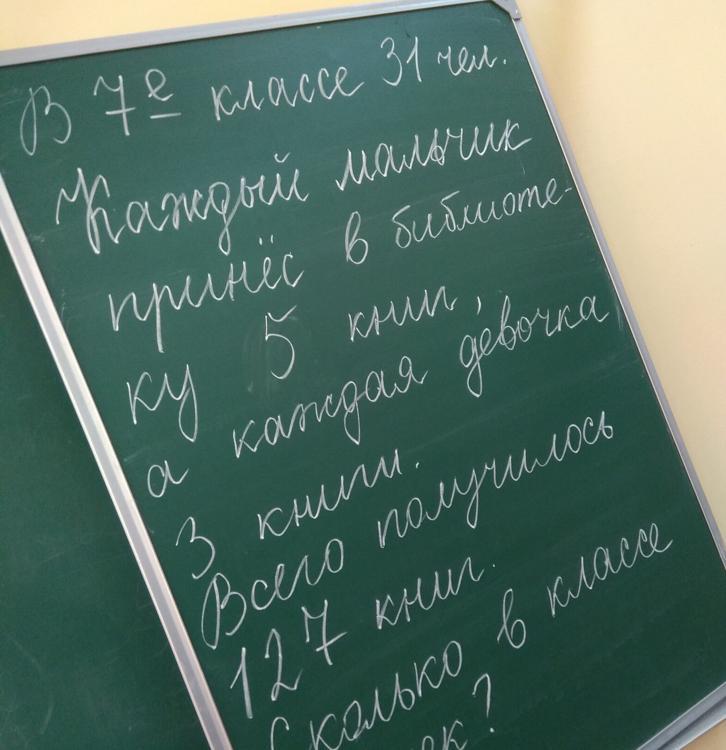 В 7е классе 31 чел.
Каждый мальчик
принёс в библиоте-
ку 5 книг,
а каждая девочка
3 книги.
Всего получилось
127 книг.
Сколько в классе
?